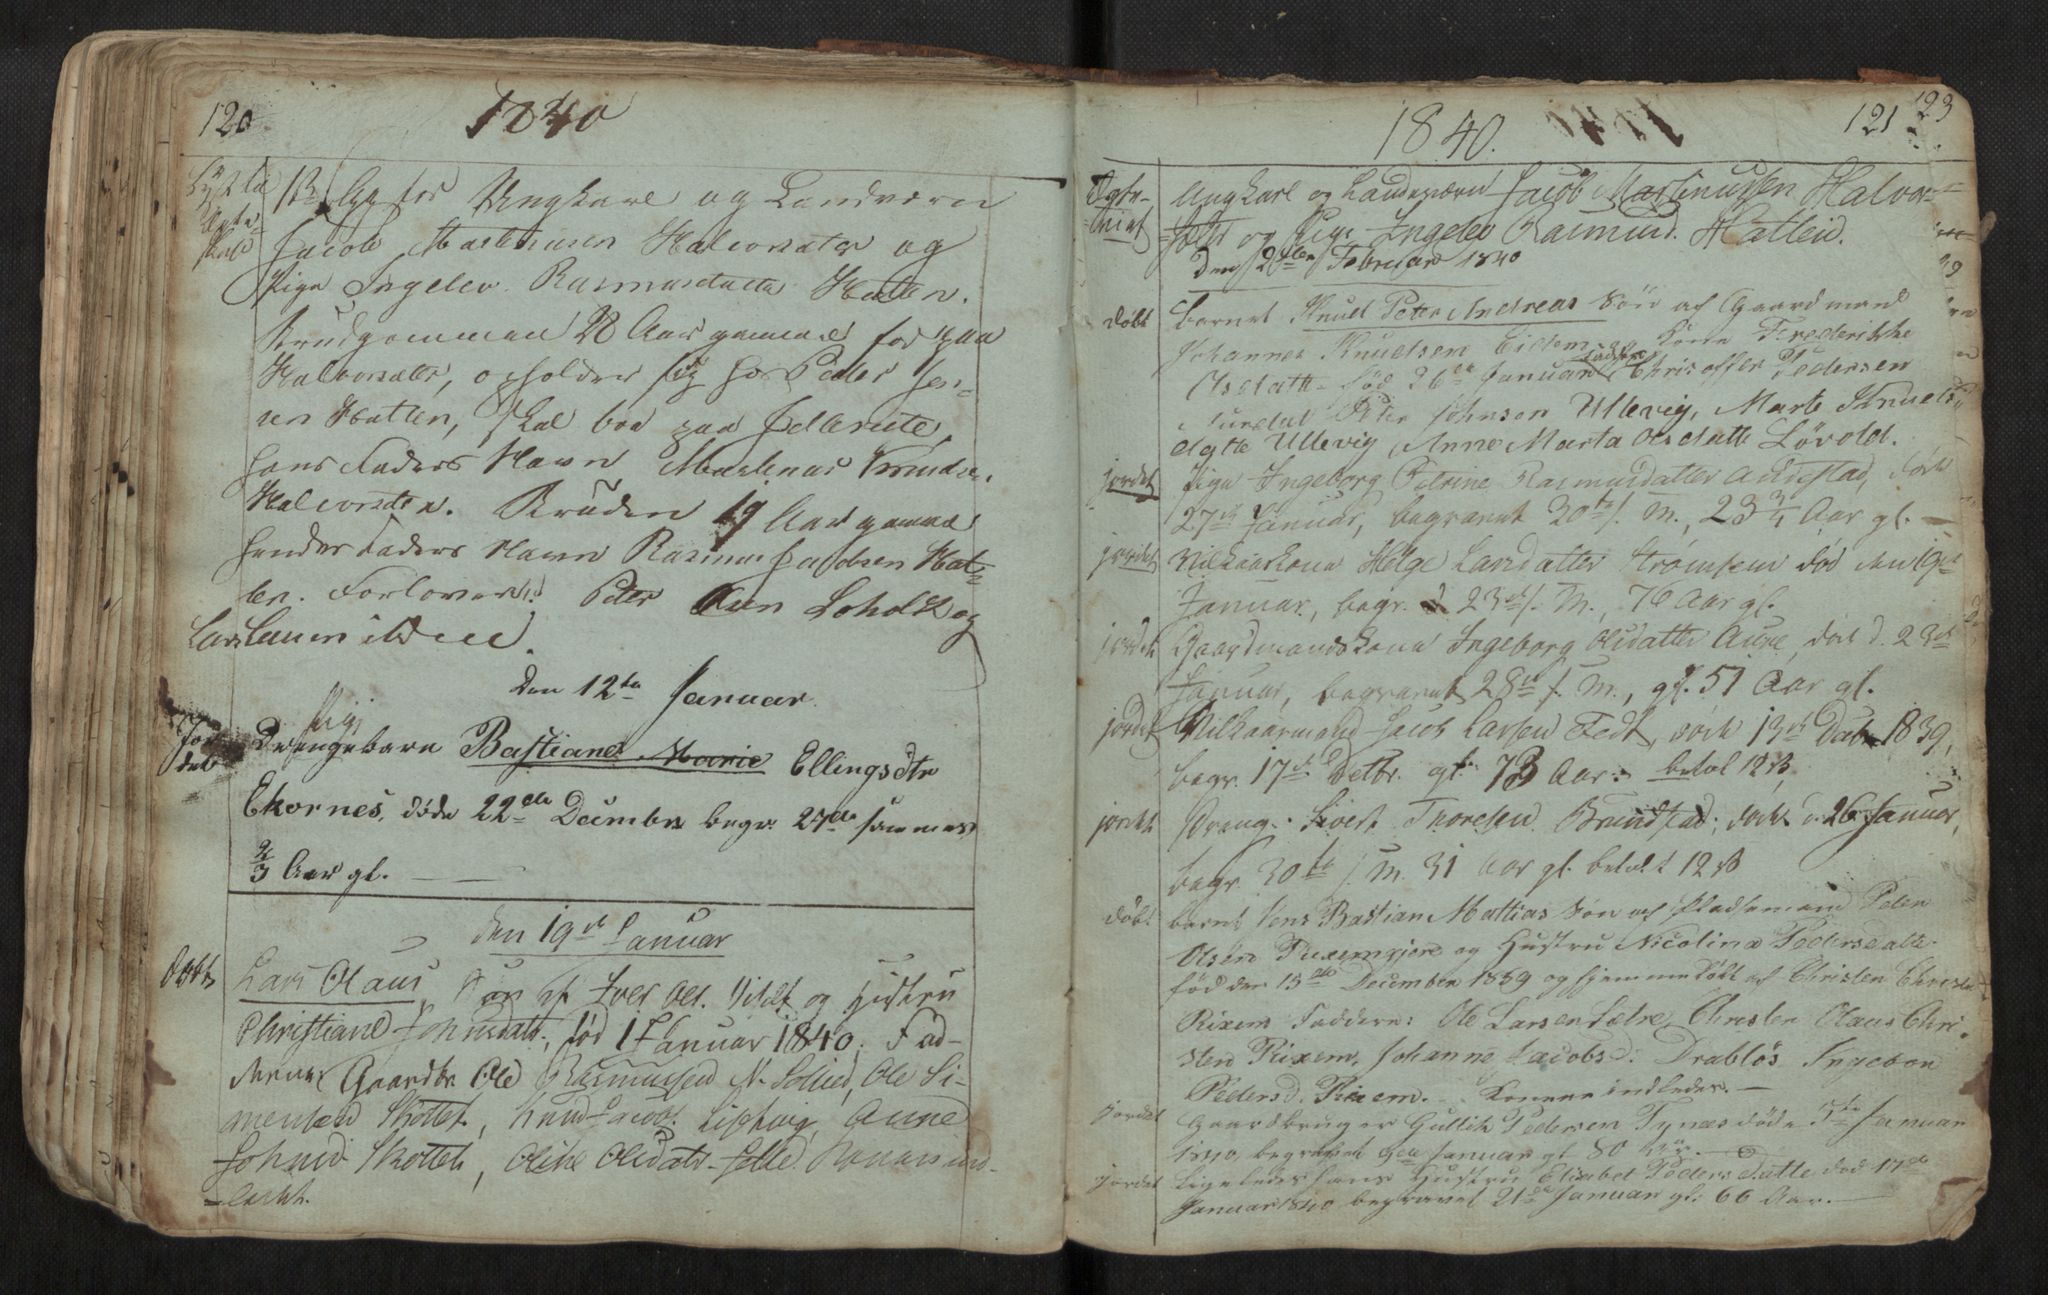 120
1840
Lyst til
Ægte-
skab
1ste Gg for Ungkarl og Landværn
Jacob Martinusen Halvorsater og
Pige Ingelev Rasmusdatter Hatlen.
Brudgommen 28 Aar gammel født paa
Halvorsater, opholder sig hos Peder Jen-
sen Hatlen, skal boe paa
hans Faders Navn Martinus Knudsen
Halvorsaten. Bruden 19 Aar gammel
hendes Faders Navn Rasmus Jacobsen Hat-
len. Forlovere: Peter Olsen Loholdt og
Lars Larsen
den 12te Januar
Jor
det
Pige
Drengebarn Bastiane Marie Ellingsdtr
Ekornes, døde 22de Decembr begr. 27de sammes
2/3 Aar gl.
den 19de Januar
Døbt
Lars Olaus, Søn af Iver Ols. og Hustru
Christiane Johnsdatt, fød 1 Januar 1840. Fad-
derne: Gaardbr Ole Rasmussen N. Sollied, Ole Si-
mensen Skottet, Knud Jacobs. Liphvig, Anne
Johnsd. Skottet, Oline Olsdatr Konen ind-
ledet.
1840.
121
123
Ægte-
viet
Ungkarl og Landeværn Jacob Martinussen Halvor-
sæter og Pige Ingelev Rasmusd. Hatlen.
den 2den Februar 1840
døbt
Barnet Knud Peter Andreas Søn af Gaardmand
Johannes Knudsen Eidem og Kone Frederikke
Olsdatt. fød 26de Januar Faddere Christoffer Pedersen
Johnsen Ullevig, Marte Knuds
datte Ullevig, Anne Marta Olsdatte Løvold.
jordet
Pige Ingeborg Petrine Rasmusdatter Aurestad, døde
27de Januar, begravet 30te s. M., 23 3/4 Aar gl.
jordet
Vilkaarskone Helge Larsdatter Strømhem død den 19de
Januar, begr. d 23de s. M., 76 Aar gl.
jordet
Gaardmandskone Ingeborg Olsdatter Aure, død d. 23de
Januar, begravet 28de s. M., gl. 51 Aar gl.
jordet
Vilkaarmand Jacob Larsen Fedt, døde 13de Debr 1839,
begr. 17de Decbr. gl. 73 Aar. betal 12 ß
jordet
Dreng Sivert Thoresen Brunstad, døde d. 26 Januar,
begr. 30te s. M. 31 Aar gl. betalt 12 ß
døbt
barnt Jens Bastian Mattias Søn af Pladsemand Peter
Olsen Rixemgjerd og Hustru Nicolina Pedersdatte
fød den 15de December 1839 og hjemmedøbt af Christen Christe
Rixem Faddere: Ole Larsen Sætre, Christen Olaus Chri-
sten Rixem, Johanne Jacobsd. Drabløs Ingebor
Pedersd. Rixem. Konen indledes. —
jordet
Gaardbruger Gullik Pedersen Tynes døde 5te Januar
1840, begravet 9de Januar gl 80 Aar.
jordet
Ligeledes hans Hustru Elisabet Peders Datte død 17de
Januar 1840 begravet 21de Januar gl: 66 Aar. —